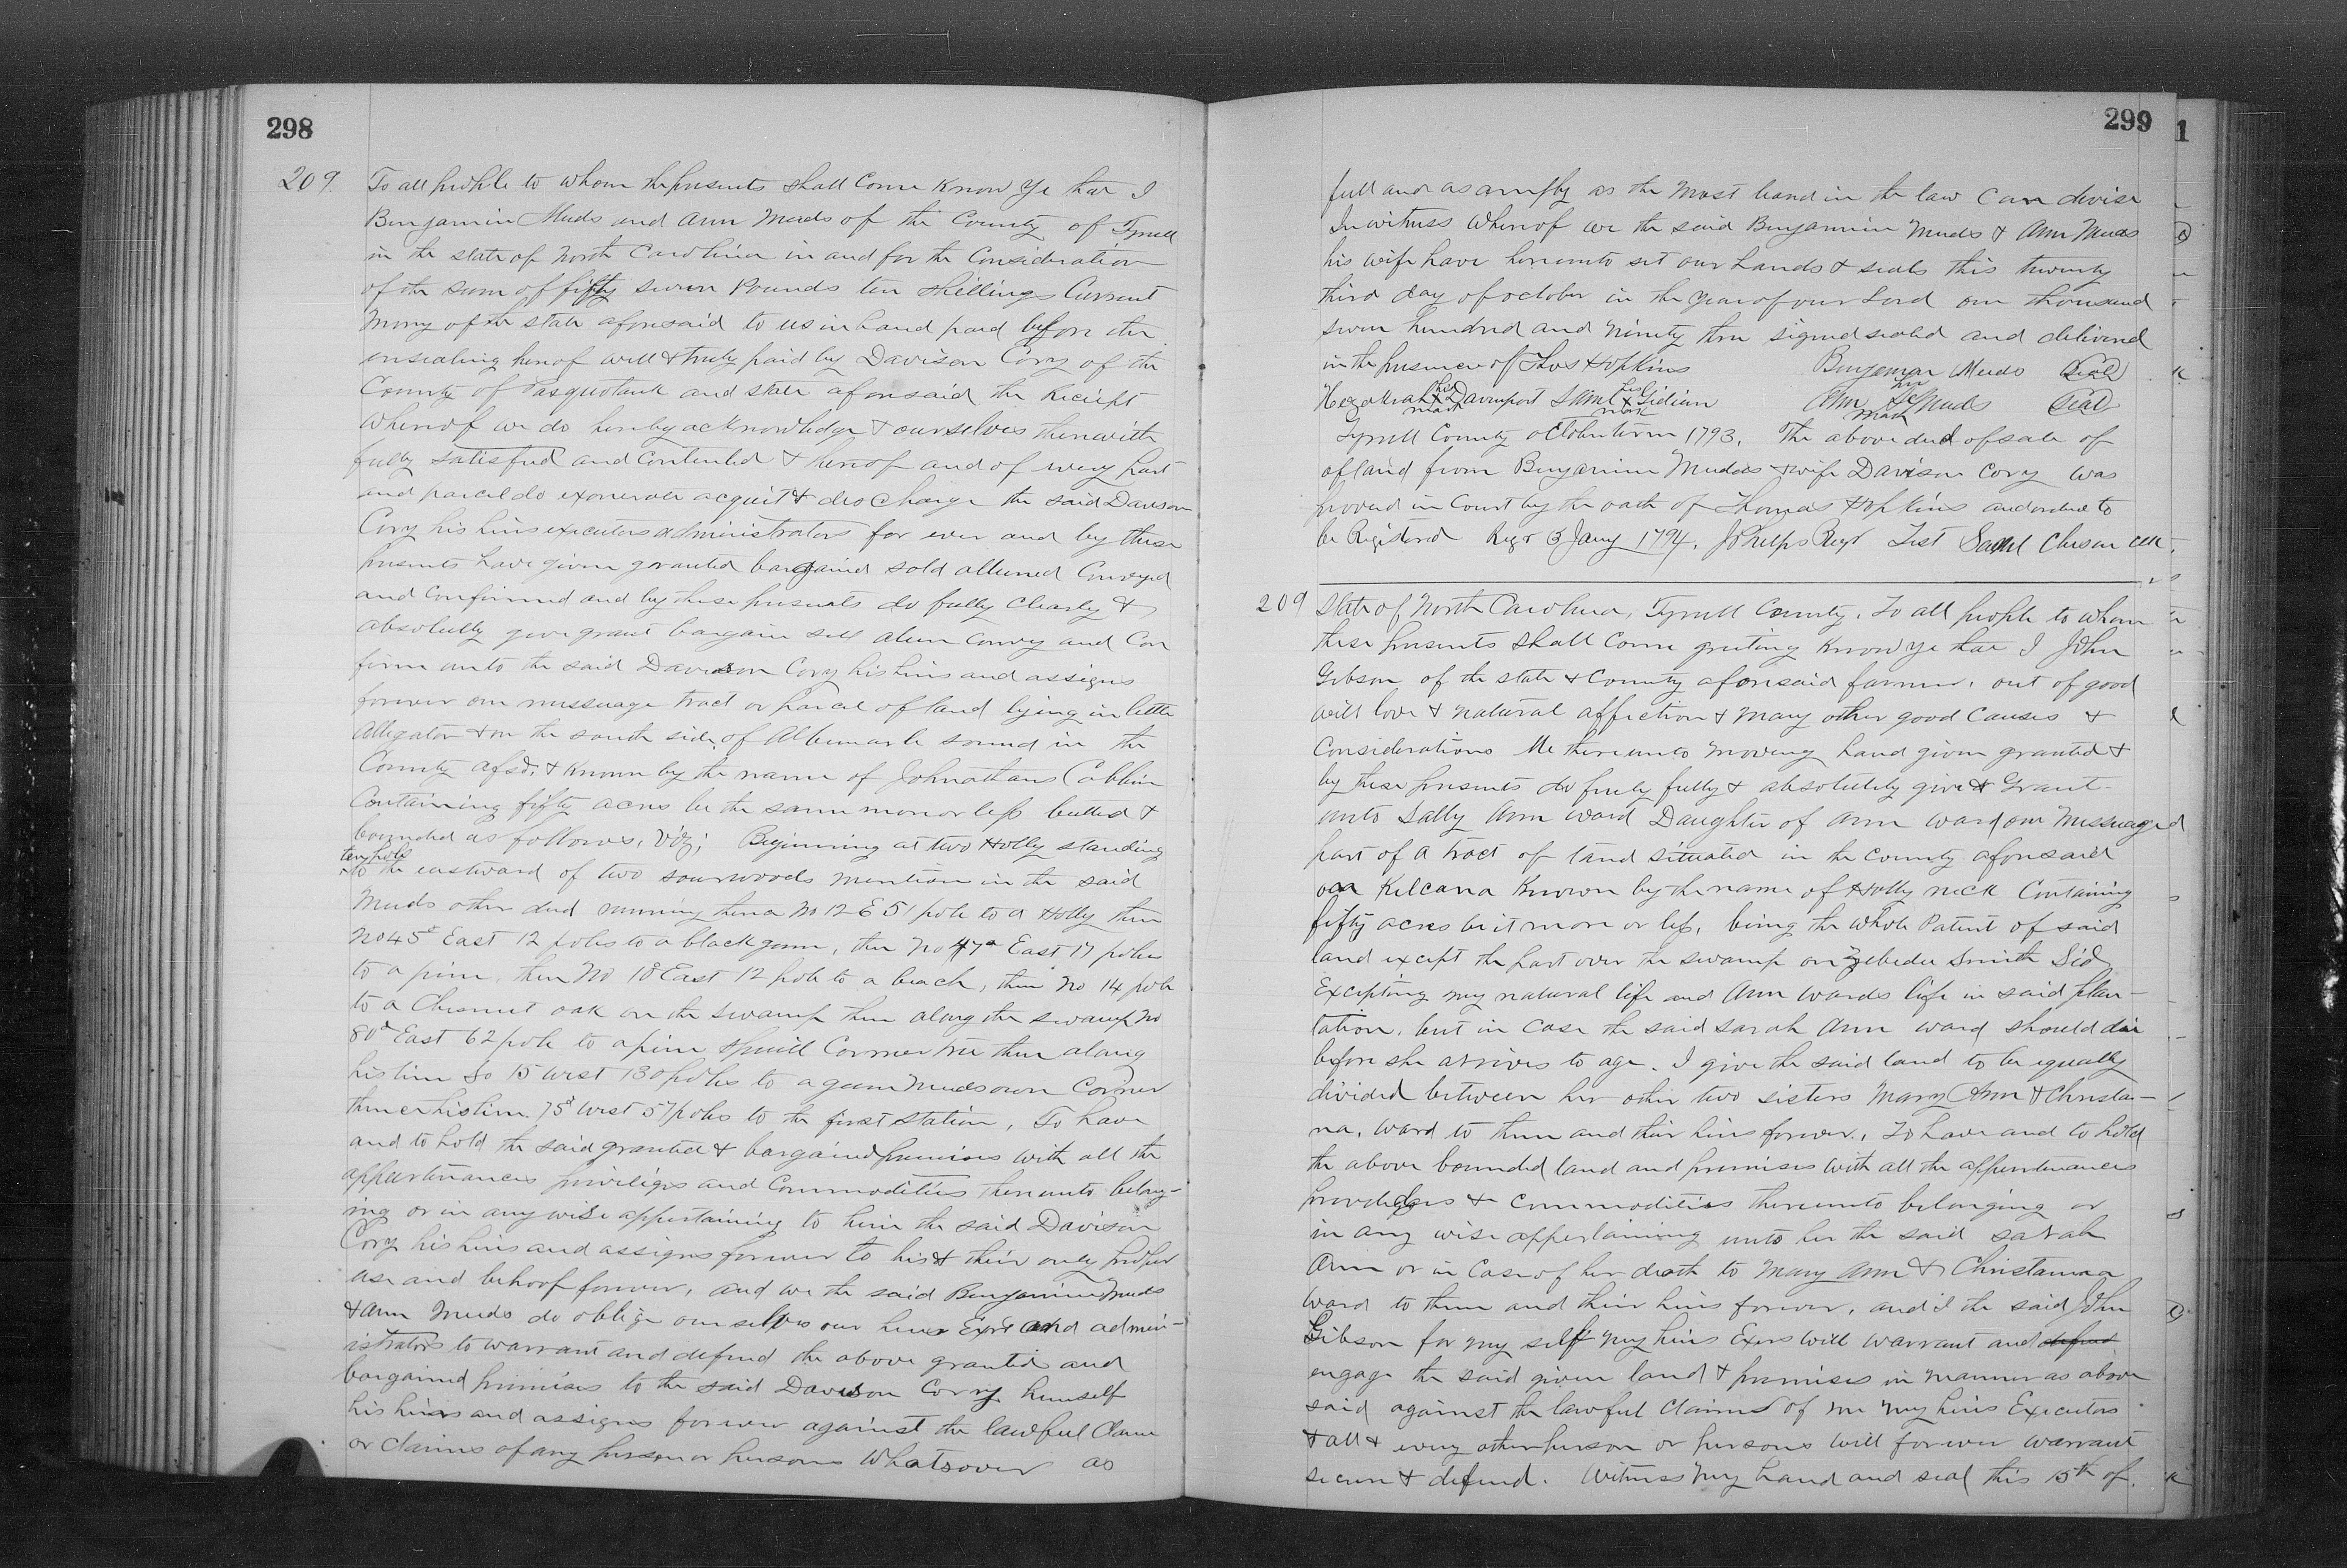 298
209. To all people to whom the presents shall Come Know Ye that I
Benjamin Meeds and Ann Meeds of the County of Tyrrell
in the state of North Carolina in and for the Consideration
of the sum of fifty seven Pounds ten shillings Current
Money of the state aforesaid to us in hand paid before the
ensealing hereof well & truly paid by Davison Cory of the
County of Pasquotank and state aforesaid the Reciept
whereof we do hereby acknowledge & ourselves therewith
fully satisfied and Contented & hereof and of every part
and parcel do exonerate acquit & discharge the said Davison
Cory his heirs executors administrators for ever and by these
presents have given granted bargained sold aliened Conveyed
and Confirmed and by these presents do fully Clearly &
absolutely give grant bargain sell alien Convey and Con
firm unto the said Davison Cory his heirs and assigns
forever one messuage tract or parcel of land lying in little
Alligator & on the south side of Albemarle sound in the
County afsd. & Known by the name of Johnathans Cabbin
Containing fifty acres be the same more or less butted &
bounded as follows, Viz; Beginning at two Holly standing
ten pole
to the eastward of two sourwoods mention in the said
Meeds other deed running thence No 12 E 51 pole to a Holly then
No 45d East 12 poles to a black gum, then No 47d East 17 poles
to a pine, then No 18 East 12 pole to a beach, then No 14 pole
to a Chesnut oak on the swamp then along the swamp No
80d East 62 pole to a pine Spruill Corner tree then along
his line So 15 West 130 poles to a gum Meeds own Corner
thence his line 75d West 57 poles to the first station, To have
and to hold the said granted & bargained premises with all the
appurtenances priviliges and Commodities thereunto belong-
ing or in any wise appertaining to him the said Davison
Cory his heirs and assigns forever to his & their only proper
use and behoof forever, and we the said Benjamin Meeds
& Ann Meeds do oblige ourselves our heirs Exrs and admin-
istrators to warrant and defend the above granted and
bargained premises to the said Davison Corry himself
his heirs and assigns forever against the lawful Claim
or Claims of any person or persons Whatsoever as
299
full and as amply as the most leand in the law Can devise
In witness Whereof we the said Benjamin Meeds & Ann Meeds
his wife have hereunto set our hands & seals this twenty
third day of october in the year of our Lord one thousand
seven hundred and Ninety three signed sealed and delivered
in the presence of Thos Hopkins Benjaman Meeds Seal
Hezekiah his X mark Davenport Saml his X mark Gidion Ann her X mark Meeds Seal
Tyrrell County October term 1793. The above deed of sale of
of land from Benjamin Meeds & wife Davison Cory was
proved in Court by the oath of Thomas Hopkins and ordered to
be Registered Regr 3 Jany 1794. J Phelps Regr Test Saml Cheson CCK.
209 State of North Carolina, Tyrrell County. To all people to whom
these presents shall Come greeting Know ye that I John
Gibson of the state & County aforesaid farmer, out of good
will love & natural affection & many other good Causes &
Considerations Me thereunto moving hand given granted &
by these presents do freely fully & absolutely give & Grant
unto Sally Ann Ward Daughter of Ann Ward one Messuaged
part of a tract of land situated in the county aforesaid
on Kilcana Known by the name of Holly neck Containing
fifty acres be it more or less, being the whole Patent of said
land except the part over the swamp on Zebedee Smith Sid
Excepting my natural life and Ann Wards life in said plan-
tation, but in case the said Sarah Ann Ward should die
before she arrives to age. I give the said land to be equally
divided between her other two sisters Mary Ann & Christa-
na, Ward to them and their heirs forever, To have and to hold
the above bounded land and premises with all the appurtenances
provileges & Commodities thereunto belonging or
in any wise appertaining unto her the said Sarah
Ann or in Case of her death to Mary Ann & Christanna
Ward to them and their heirs forever, and I the said John
Gibson for my self my heirs Exers will warrant and defend
engage the said given land & premises in manner as above
said against the lawful Claims of me my heirs Executors
& all & every other person or persons will forever warrant
secure & defend. Witness my hand and seal this 15th of.